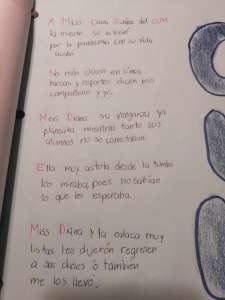 A Miss Diana del CUM
la muerte se
por la pandemia con su vida
acabó
No más clases en línea
tareas y reportes dicen mis
compañeros y yo.
Miss Diana su venganza ya
planeaba mientras tanto sus
alumnos no se conectaban
Ella muy astuta desde la tumba
los miraba, pues no sabían
lo que les esperaba.
Miss Diana y la calaca muy
listas les dijeron regresen
a sus clases o también
me los llevo.